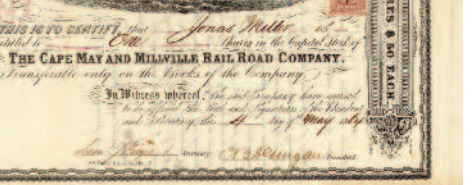 THIS IS TO CERTIFY, that Jonas Miller is
entitled to One Shares in the Capital Stock of
THE CAPE MAY AND MILLVILLE RAIL ROAD COMPANY.
Transferable only on the Books of the Company.
In Witness whereof, the said Company have caused
to be affixed the Seal and Signatures of the President
and Secretary, this 4 day of May
$ 50 EACH.